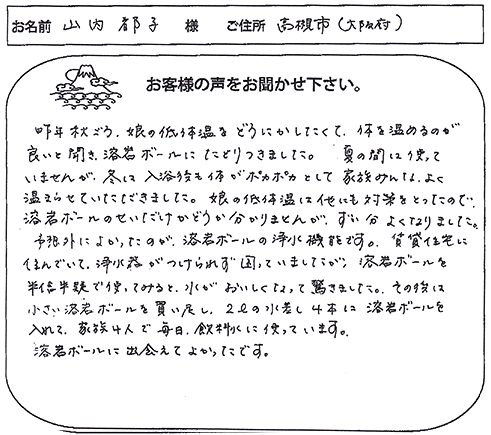 お名前 山内都子 様 ご住所 高槻市(大阪府)
お客様の声をお聞かせ下さい。
昨年秋ごろ、娘の低体温をどうにかしたくて、体を温めるのが
良いと聞き、溶岩ボールにたどりつきました。 夏の間は使って
いませんが、冬は入浴後も体がポカポカとして家族みんな、よく
温まらせていただきました。娘の低体温は他にも対策をとったので、
溶岩ボールのせいだけかどうか分かりませんが、ずい分よくなりました。
予想外によかったのが、溶岩ボールの浄水機能です。賃貸住宅に
住んでいて、浄水器がつけられず困っていましたが、溶岩ボールを
半信半疑で使ってみると、水がおいしくなって驚きました。その後は
小さい溶岩ボールを買い足し、2ℓの水差し4本に溶岩ボールを
入れて、家族4人で毎日、飲料水に使っています。
溶岩ボールに出会えてよかったです。